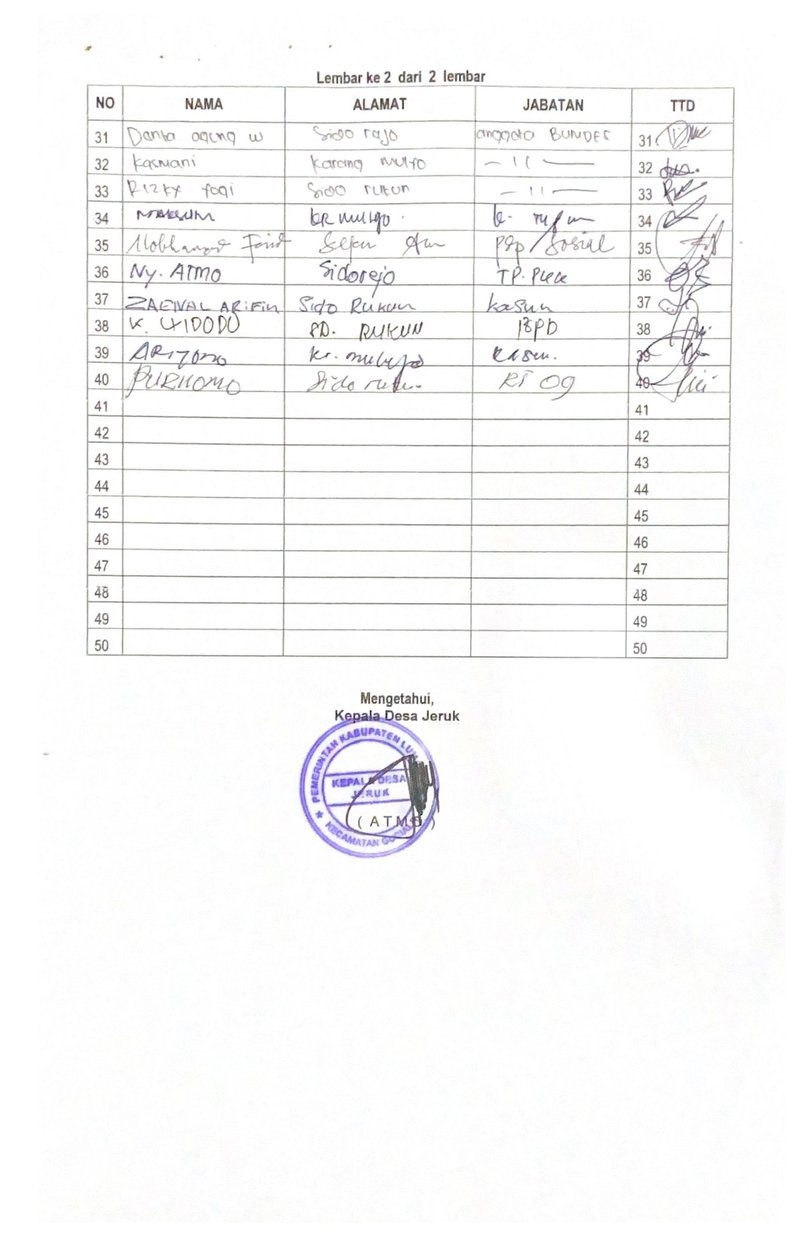 Lembar ke 2 dari 2 lembar
NO NAMA ALAMAT JABATAN TTD
31 Danta ageng w Sido rejo anggota BUMDES 31
32 Kasmani Karang mulyo - 11 - 32
33 Rizky Yogi Sido rukun - 11 - 33
34 MAKSUM kr mulyo. 34
35 35
36 Ny. ATMO Sidorejo TP. PKK 36
37 ZAENAL ARIFIN Sido Rukun kasun 37
38 K. WIDODO SD. RUKUN BPD 38
39 ARIYONO Kr. mulyo kasun. 39
40 PURNOMO Sido rukun RT 09 40
41 41
42 42
43 43
44 44
45 45
46 46
47 47
48 48
49 49
50 50
Mengetahui,
Kepala Desa Jeruk
PEMERINTAH KABUPATEN
KEPALA DESA
JERUK
( ATMO )
KECAMATAN